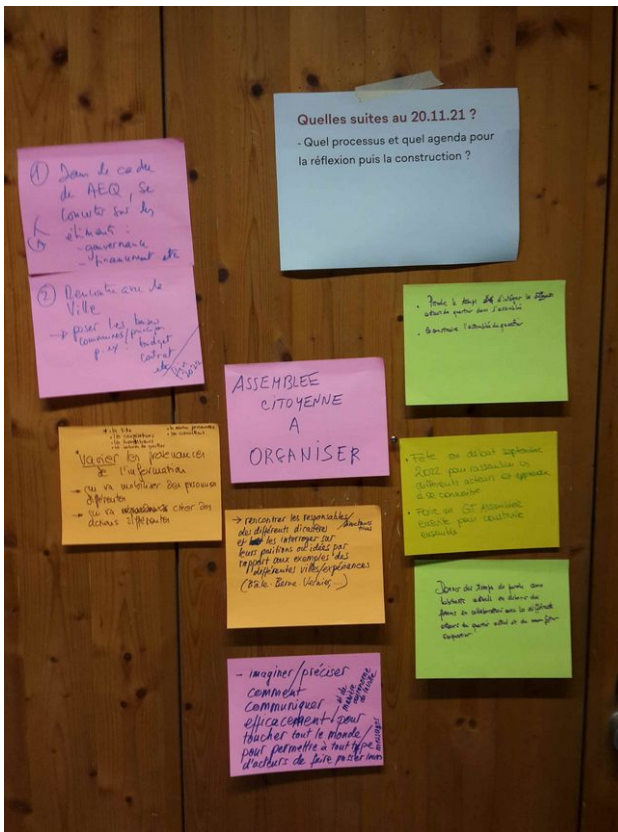 Quelles suites au 20.11.21 ?
- Quel processus et quel agenda pour
la réflexion puis la construction ?
① Dans le cadre
de AEQ, se
concerter sur les
éléments :
- gouvernance
- financement etc
② Rencontre avec la
Ville
→ poser les bases
communes/principes
p. ex : budget
contrat
etc
2022
ASSEMBLEE
CITOYENNE
A
ORGANISER
• la Ville
• les coopératives
Varier les provenances
de l'information
→ qui va mobiliser des personnes
différentes
→ qui va créer des
actions différentes
→ rencontrer les responsables/
des différents dicastères
et les interroger sur
leurs positions ou idées par
rapport aux exemples des
différentes villes/expériences
(Bâle. Berne. Vernier...)
- imaginer/préciser
comment
communiquer
efficacement pour
toucher tout le monde
pour permettre à tout type
d'acteurs de faire passer leurs
messages
et de
manière
• Prendre le temps d'intégrer les
acteurs du quartier dans l'assemblée
• Co-construire l'assemblée de quartier
• Fête en début septembre
2022 pour rassembler les
différents acteurs et apprendre
à se connaître
• Faire un GT Assemblée
ensuite pour construire
ensemble
Donner des temps de parole aux
habitants actuels en dehors des
en collaboration avec les différents
acteurs du quartier actuel et du